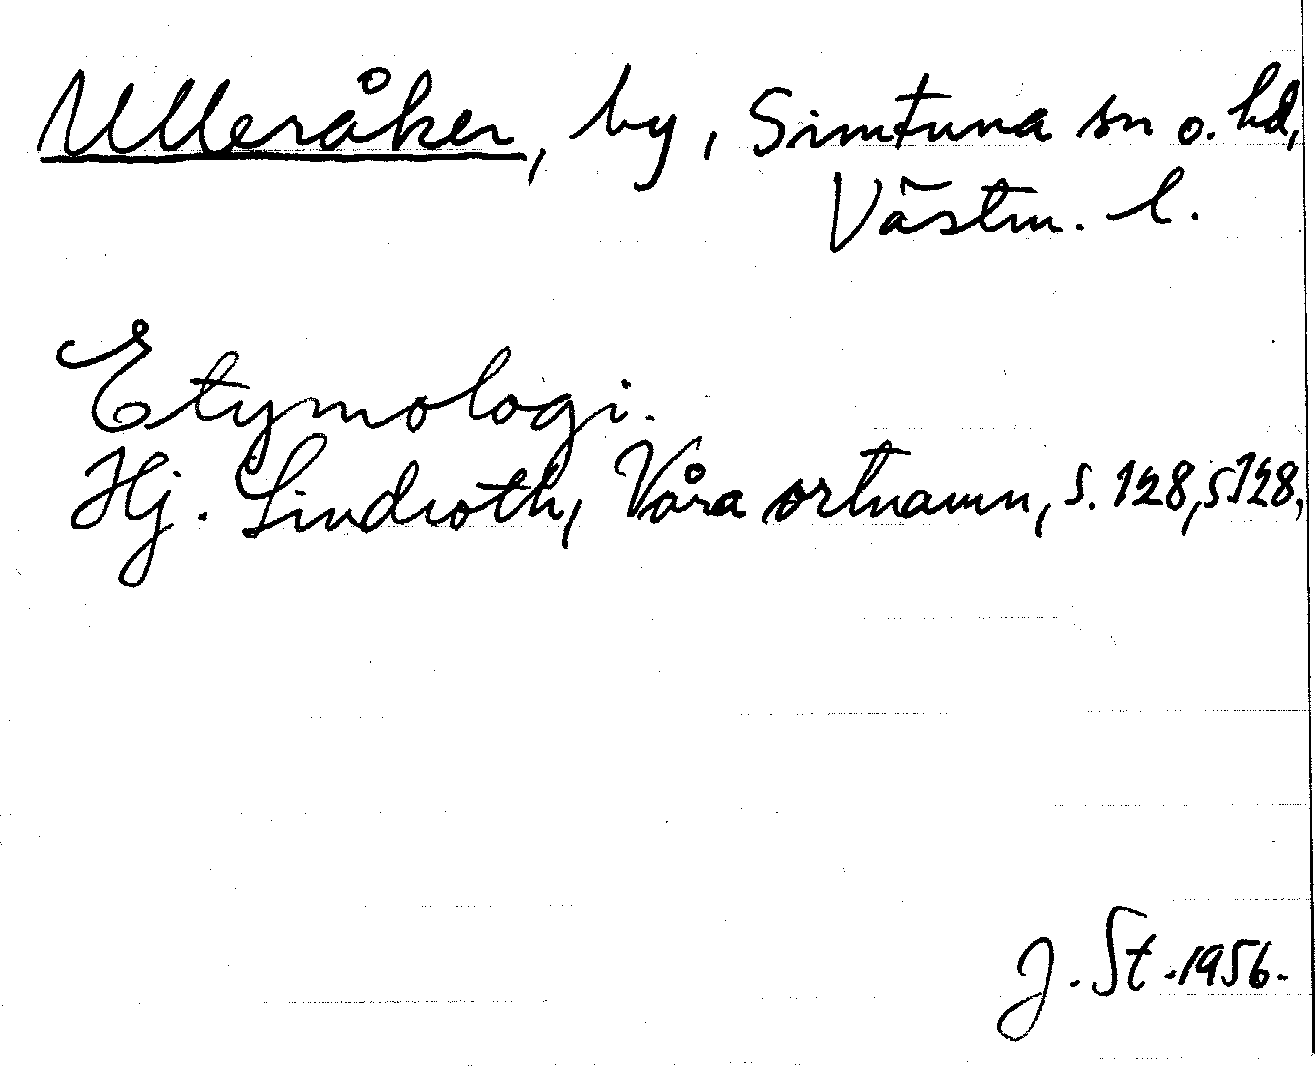 Ulleråker, by, Simtuna sn o. hd,
Västm. l.
Etymologi.
Hj. Lindroth, Våra ortnamn, s. 128, s 128,
J. St. 1956.